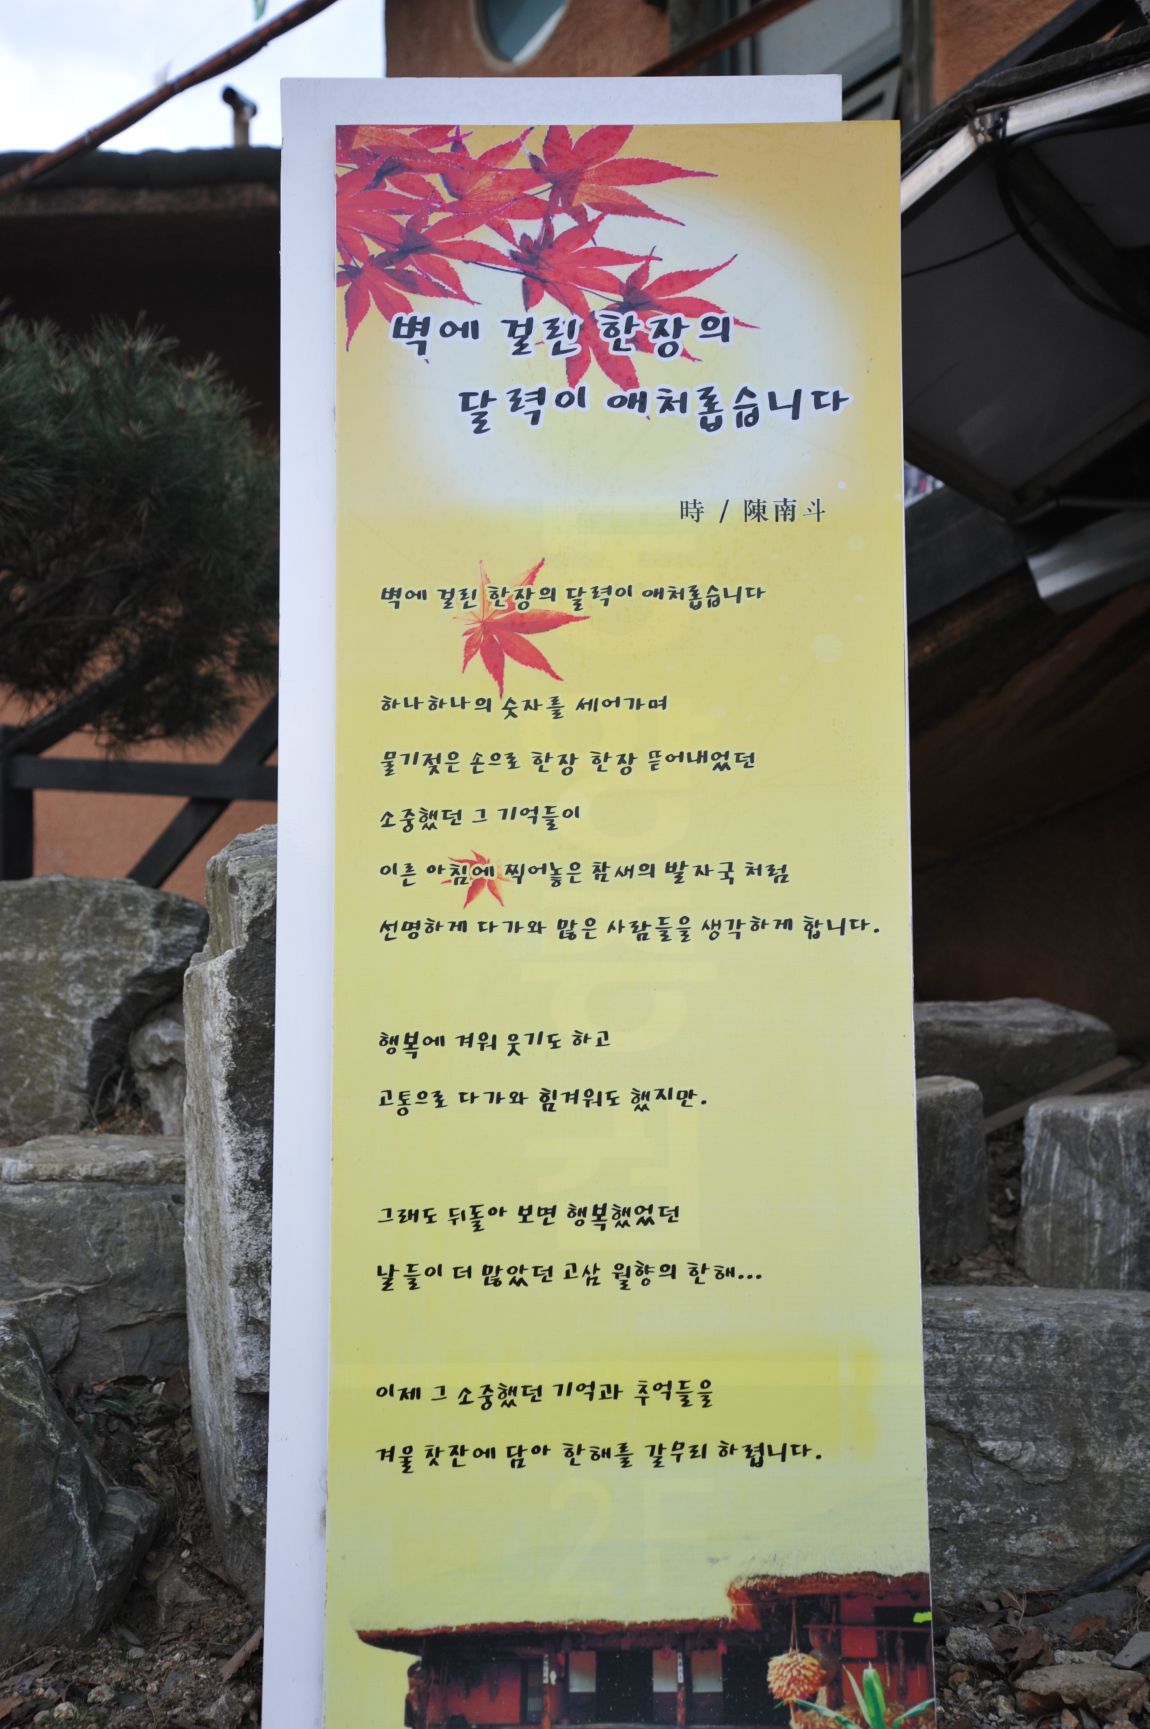 벽에 걸린 한장의
달력이 애처롭습니다
時 / 陳南斗
벽에 걸린 한장의 달력이 애처롭습니다
하나하나의 숫자를 세어가며
물기젖은 손으로 한장 한장 뜯어내었던
소중했던 그 기억들이
이른 아침에 찍어놓은 참새의 발자국처럼
선명하게 다가와 많은 사람들을 생각하게 합니다.
행복에 겨워 웃기도 하고
고통으로 다가와 힘겨워도 했지만.
그래도 뒤돌아 보면 행복했었던
날들이 더 많았던 고삼 월향의 한해...
이제 그 소중했던 기억과 추억들을
겨울 찻잔에 담아 한해를 갈무리 하렵니다.